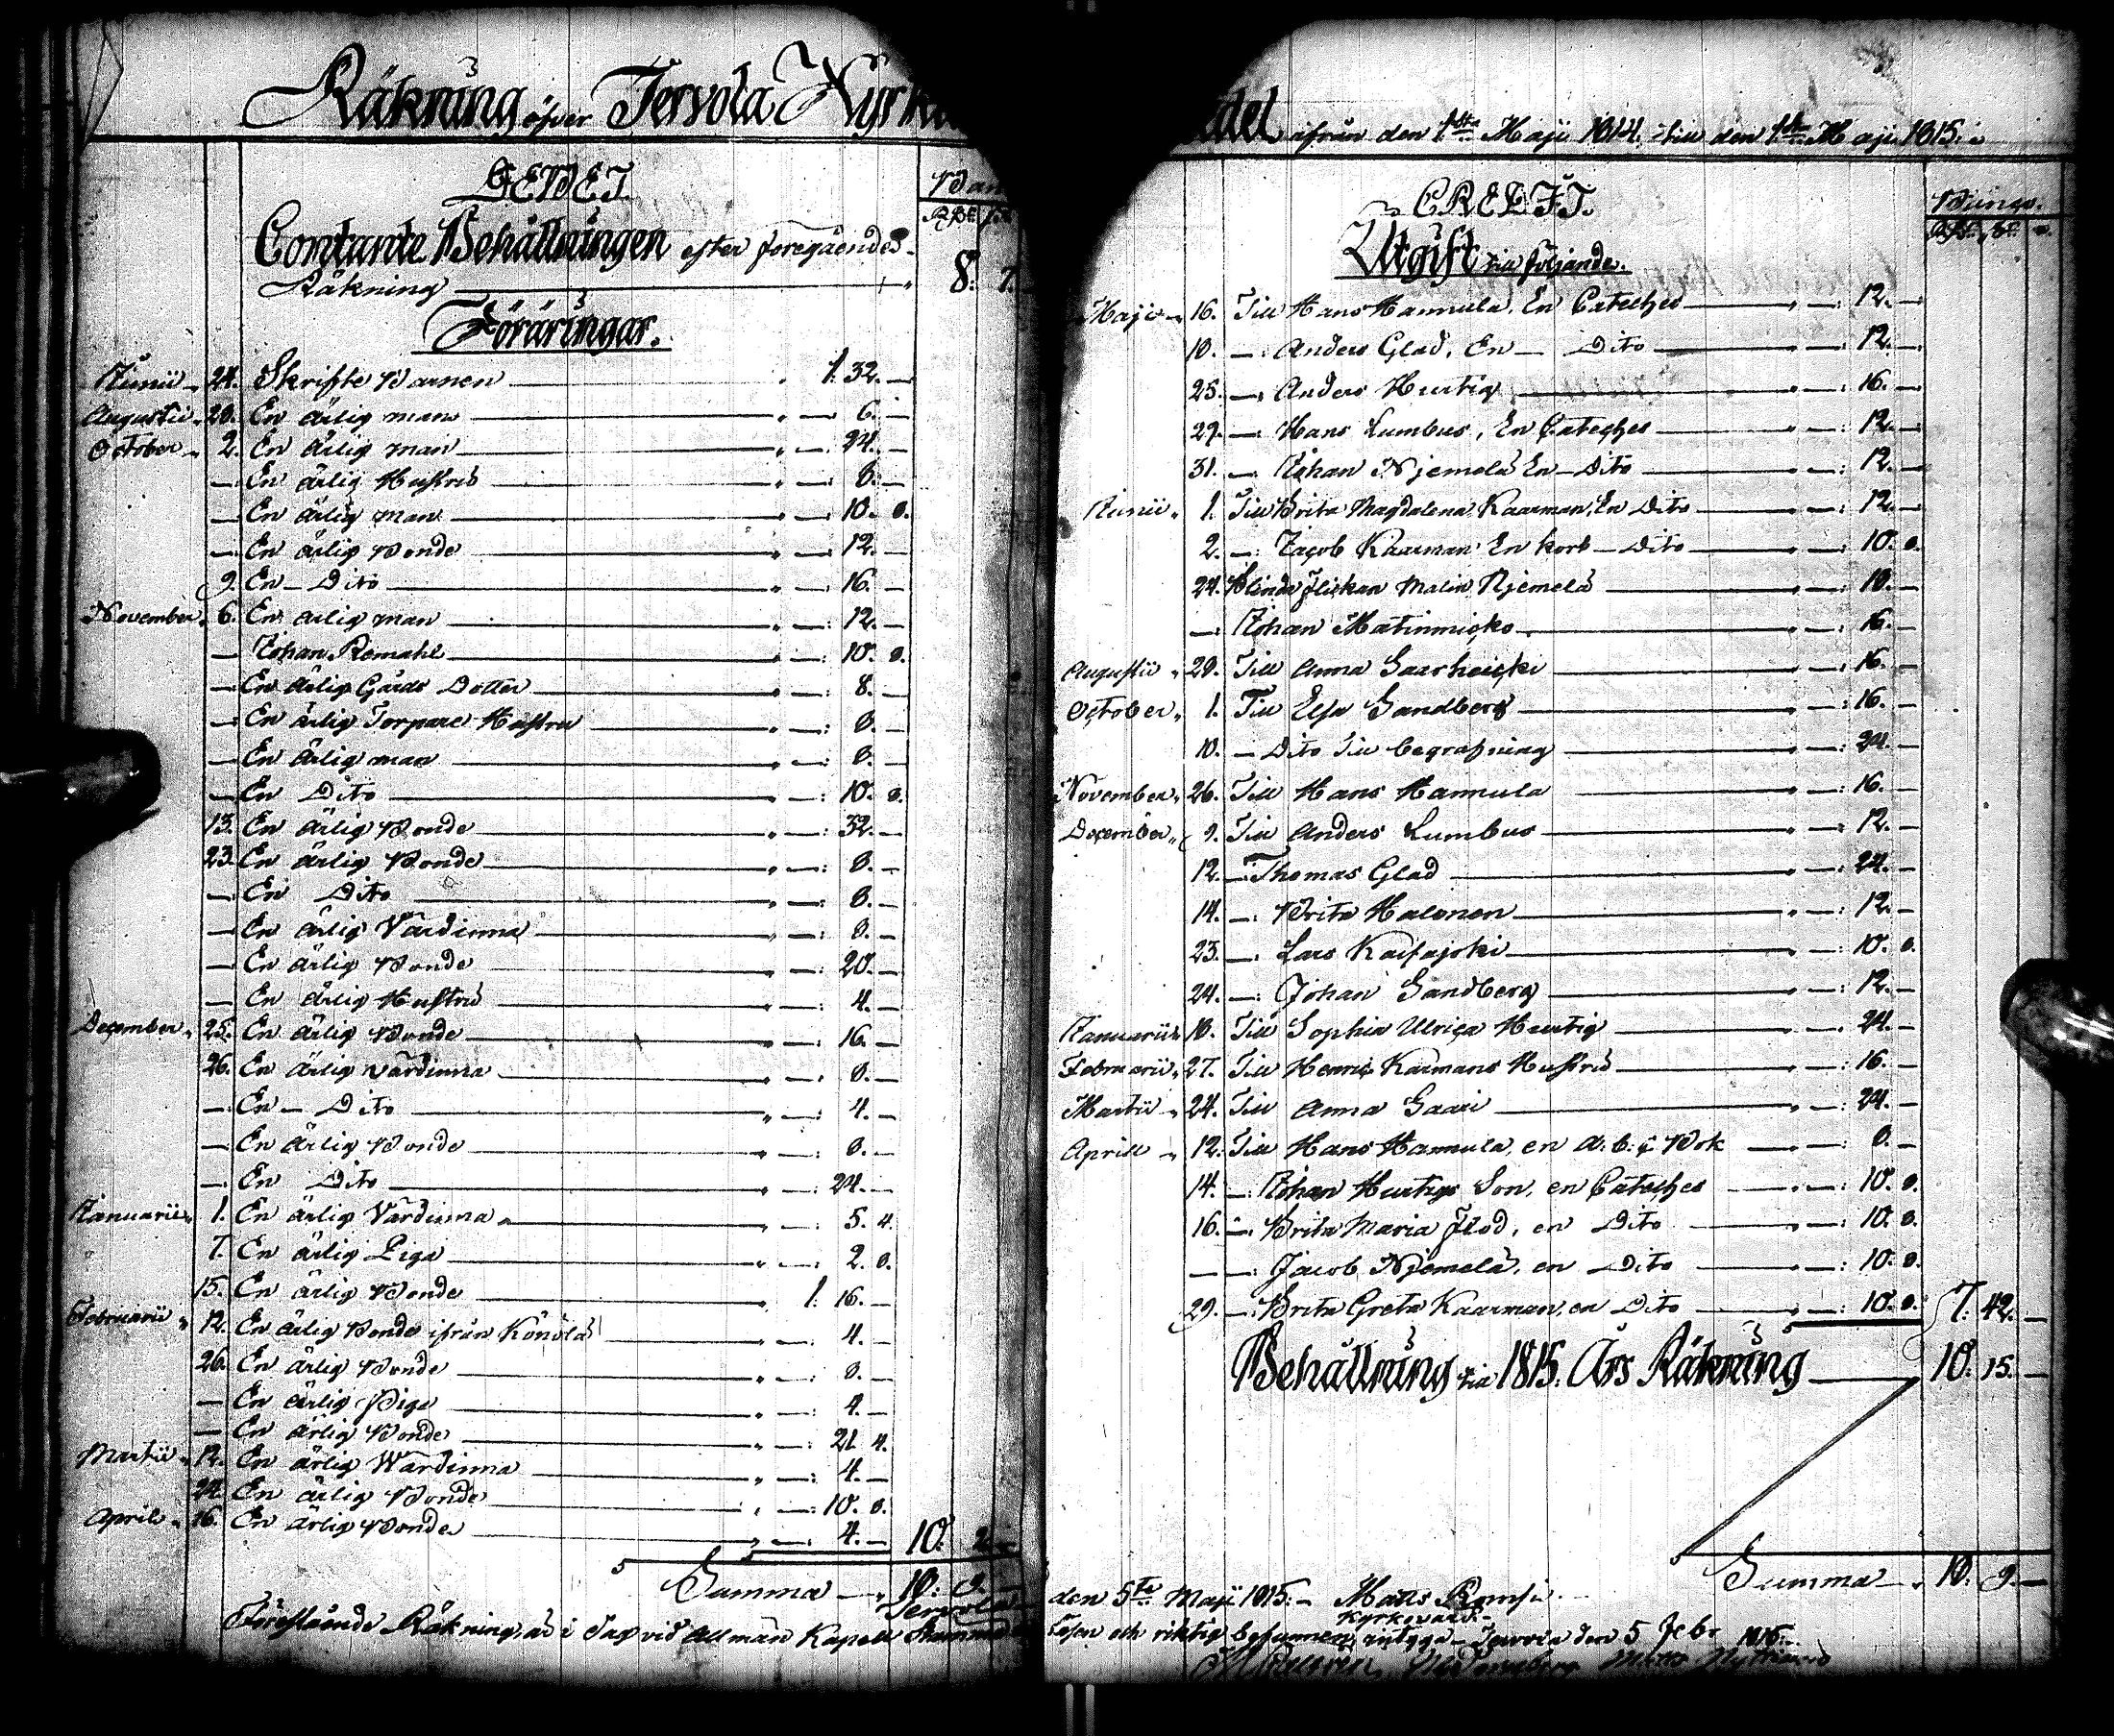 Räkning öfver Tervola Kyrk
DEBET.
Contante Behållningen efter föregående
Räkning 8. 7.
Föräringar.
Junii 24. Skrifte Barnen 1. 32. —
Augustii 28. En ärlig man — 6. —
October 2. En ärlig man — 24. —
— En ärlig Hustru — 8. —
— En ärlig man — 10. 8.
— En ärlig Bonde — 12. —
9. En — Dito — 16. —
November 6. En ärlig man — 12. —
— Johan Romahl — 10. 8.
— En ärlig Gårds Dotter — 8. —
— En ärlig Torpare Hustru — 8. —
— En ärlig man — 8. —
— En Dito — 10. 8.
13. En ärlig Bonde — 32. —
23. En ärlig Bonde — 8. —
— En Dito — 8. —
— En ärlig Värdinna — 8. —
— En ärlig Bonde — 20. —
— En ärlig Hustru — 4. —
December 25. En ärlig Bonde — 16. —
26. En ärlig värdinna — 8. —
— En — Dito — 4. —
— En ärlig Bonde — 8. —
— En Dito — 24. —
Januarii 1. En ärlig Värdinna — 5. 4.
7. En ärlig Piga — 2. 8.
15. En ärlig Bonde 1. 16. —
Februarii 12. En ärlig Bonde ifrån Könölä — 4. —
26. En ärlig Bonde — 8. —
— En ärlig Piga — 4. —
— En ärlig Bonde — 21. 4.
Martii 12. En ärlig Wärdinna — 4. —
24. En ärlig Bonde — 10. 8.
April 16. En ärlig Bonde — 4. — 10. 2. —
Summa 18. 9. —
Tervola
Föreståënde Räkning är i dag vid allmän Kapell Stämma
edel ifrån den 1sta Maji 1814. till den 1sta Maji 1815.
CREDIT.
Utgift till följande.
Maji 16. Till Hans Hannula, En Cateches — 12. —
18. — Anders Glad, En — Dito — 12. —
25. — Anders Hurtig — 16. —
29. — Hans Lumbus, En Cateches — 12. —
31. — Johan Njemelä En — Dito — 12. —
Junii 1. Till Brita Magdalena Kaarman, En Dito — 12. —
2. — Jacob Kaarman En kort — Dito — 10. 8.
24. Blinda flickan Malin Njemelä — 18. —
— Johan Matinmicko — 16. —
Augustii 29. Till Anna Saarheicki — 16. —
October 1. Till Elsa Sandberg — 16. —
10. — Dito till begrafning — 24. —
November 26. Till Hans Hannula — 16. —
December 9. Till Anders Lumbus — 12. —
12. — Thomas Glad — 24. —
14. — Brita Halonen — 12. —
23. — Lars Kaifajoki — 10. 8.
24. — Johan Sandberg — 12. —
Januarii 18. Till Sophia Ulrica Hurtig — 24. —
Februarii 27. Till Henric Kaimans Hustru — 16. —
Martii 24. Till Anna Saari — 24. —
Aprill 12. Till Hans Hannula, en a: b: c Bok — 8. —
14. — Johan Hurtigs Son, en Cateches — 10. 8.
16. — Brita Maria Flod, en Dito — 10. 8.
— — Jacob Njemelä, en Dito — 10. 8.
29. — Brita Greta Kaarman, en Dito — 10. 8. 7. 42. —
Behållning till 1815. Års Räkning 10. 15. —
Summa 18. 9. —
den 5te Maji 1815. — Matts
Kyrkovärd.
och riktig befunnen, intyga — den 5 Febr 1816.